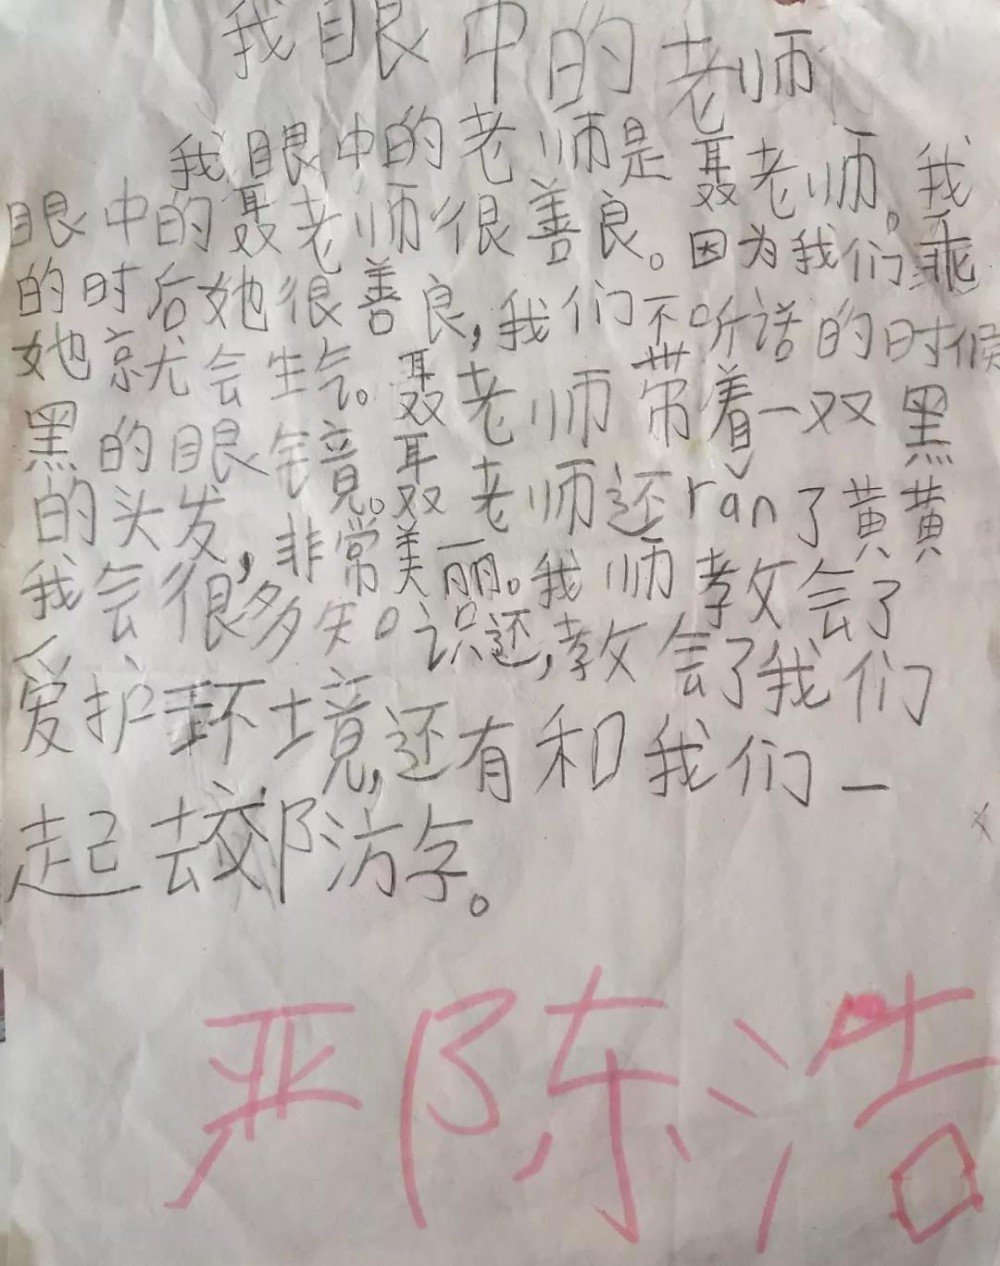 我眼中的老师
我眼中的老师是聂老师。我
眼中的聂老师很善良。因为我们乖
的时后她很善良,我们不听话的时候
她就会生气。聂老师带着一双黑
黑的眼镜。聂老师还ran了黄黄
的头发,非常美丽。我师教会了
我会很多知识还,教会了我们
爱护环境,还有和我们一
起去郊游字。
严陈浩